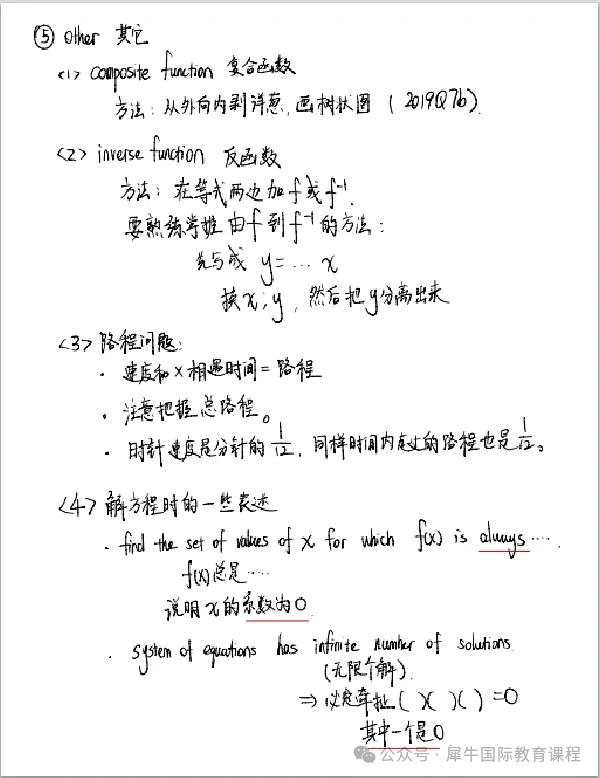 ⑤ other 其它
<1> composite function 复合函数
方法：从外向内剥洋葱，画树状图 (2019Q7b).
<2> inverse function 反函数
方法：在等式两边加 f 或 f⁻¹.
要熟练掌握由 f 到 f⁻¹ 的方法：
先写成 y = … x
换 x, y，然后把 y 分离出来
<3> 路程问题：
· 速度和 × 相遇时间 = 路程
· 注意把握总路程。
· 时针速度是分针的 1/12，同样时间内走过的路程也是 1/12。
<4> 解方程时的一些表述
· find the set of values of x for which f(x) is always ….
f(x) 总是……
说明 x 的系数为 0
· system of equations has infinite number of solutions.
(无限个解).
⇒ 必定牵扯 ( )( )( ) = 0
其中一个是 0
公众号 · 犀牛国际教育课程